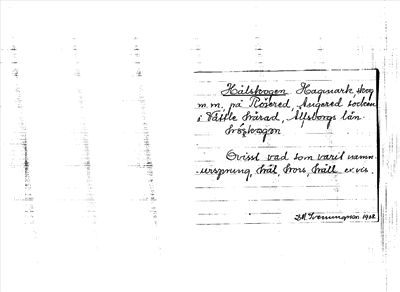 Hålskogen Hagmark, skog
m.m. på Rösered, Angered socken
i Vättle härad, Älfsborgs län.
Ovisst vad som varit namn-
ursprung, hål, hors, håll exvis.
1928